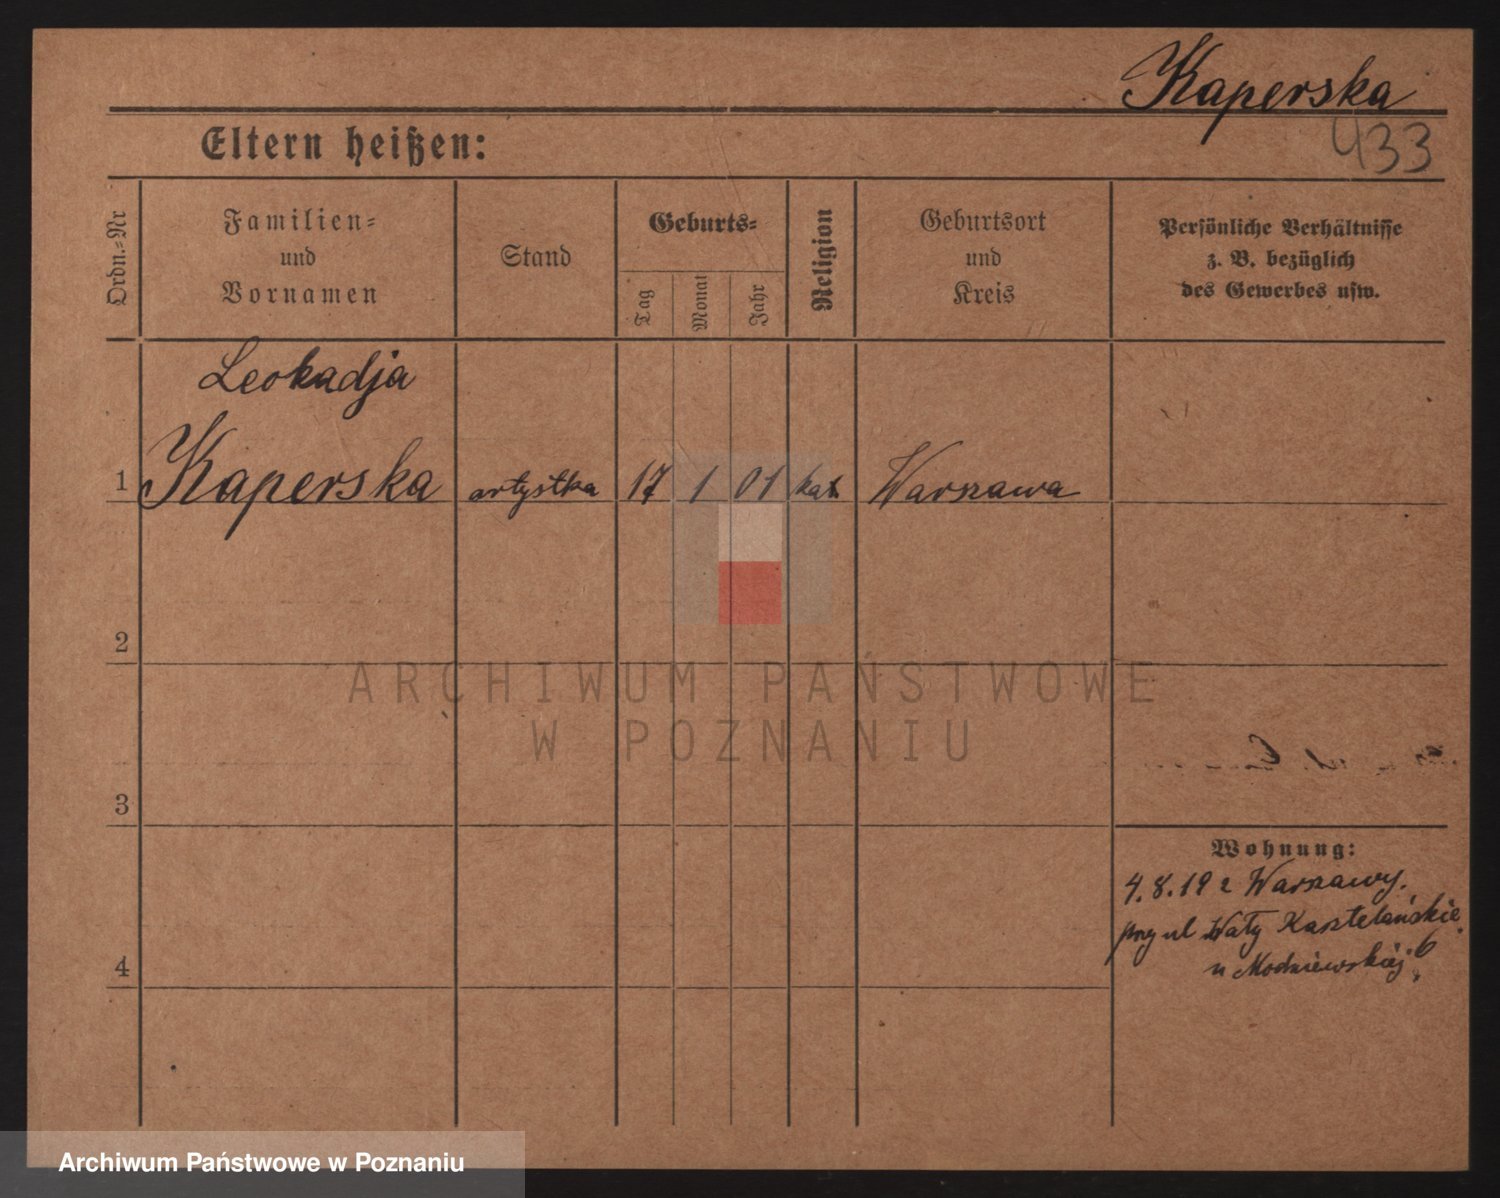 Kaperska
433
Eltern heißen:
Ordn.=Nr
Familien=
und
Vornamen
Stand
Geburts=
Tag
Monat
Jahr
Religion
Geburtsort
und
Kreis
Persönliche Verhältnisse
z. B. bezüglich
des Gewerbes usw.
Leokadja
1 Kaperska artystka 17 1 01 kat Warszawa
2
3
4
Wohnung:
4.8.19 z Warszawy.
przy ul Wały Kasztelańskie 6
u Modniewskiej
ARCHIWUM PAŃSTWOWE
W POZNANIU
Archiwum Państwowe w Poznaniu